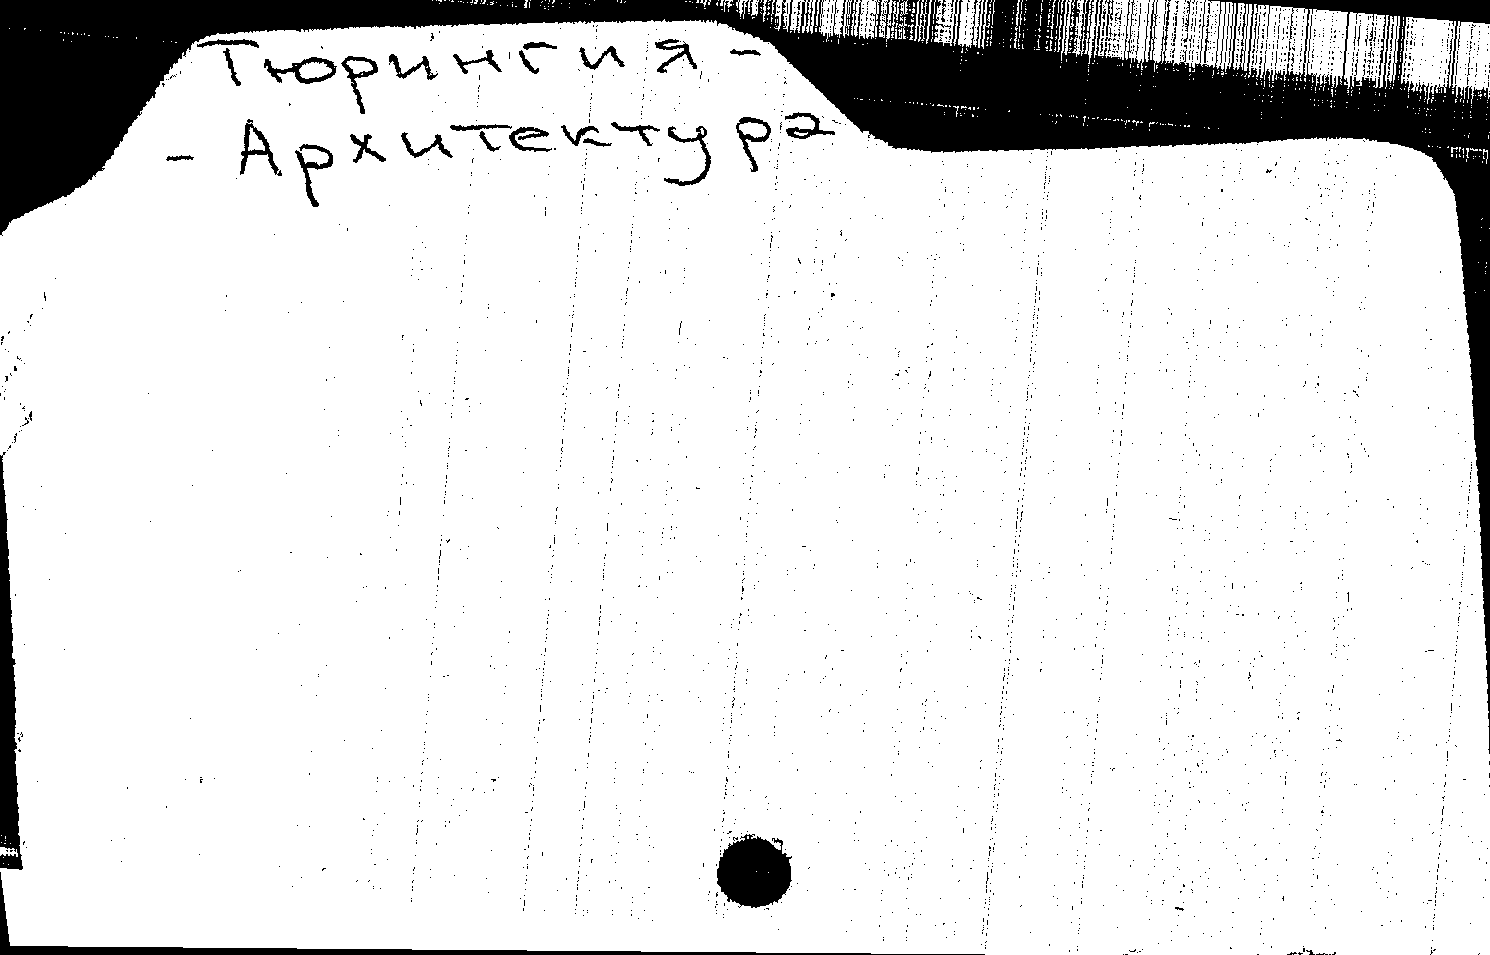 Тюрингия -
- Архитектура